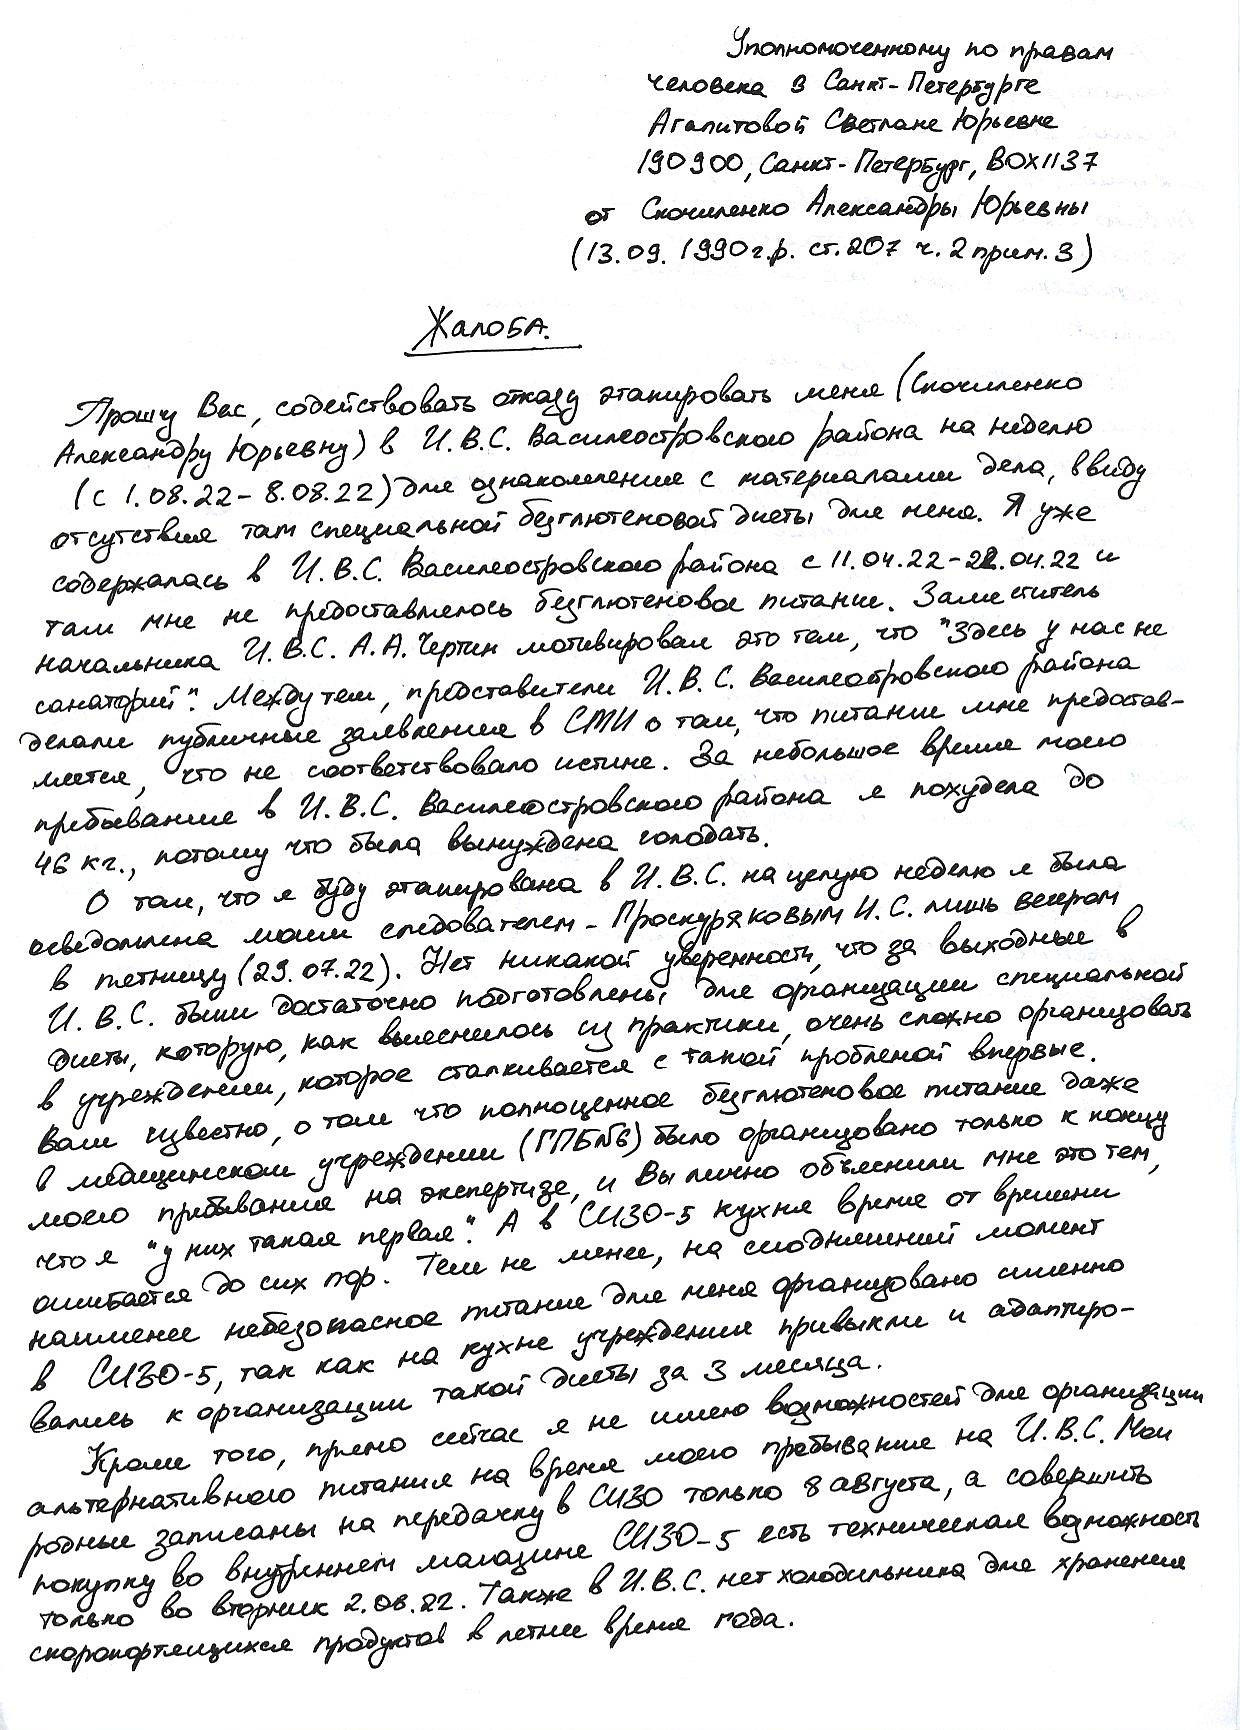 Уполномоченному по правам
человека в Санкт-Петербурге
Агапитовой Светлане Юрьевне
190900, Санкт-Петербург, BOX1137
от Скочиленко Александры Юрьевны
(13.09.1990г.р. ст.207 ч.2 прим.3)
Жалоба.
Прошу Вас, содействовать отказу этапировать меня (Скочиленко
Александру Юрьевну) в И.В.С. Василеостровского района на неделю
(с 1.08.22-8.08.22) для ознакомления с материалами дела, ввиду
отсутствия там специальной безглютеновой диеты для меня. Я уже
содержалась в И.В.С. Василеостровского района с 11.04.22-22.04.22 и
там мне не предоставлялось безглютеновое питание. Заместитель
начальника И.В.С. А.А. Чертин мотивировал это тем, что "Здесь у нас не
санаторий". Между тем, представители И.В.С. Василеостровского района
делали публичные заявления в СМИ о том, что питание мне предостав-
ляется, что не соответствовало истине. За небольшое время моего
пребывания в И.В.С. Василеостровского района я похудела до
46 кг., потому что была вынуждена голодать.
О том, что я буду этапирована в И.В.С. на целую неделю я была
осведомлена моим следователем - Проскуряковым И.С. лишь вечером
в пятницу (29.07.22). Нет никакой уверенности, что за выходные в
И.В.С. были достаточно подготовлены для организации специальной
диеты, которую, как выяснилось из практики, очень сложно организовать
в учреждении, которое сталкивается с такой проблемой впервые.
Вам известно, о том что полноценное безглютеновое питание даже
в медицинском учреждении (ГПБ№6) было организовано только к концу
моего пребывания на экспертизе, и Вы лично объяснили мне это тем,
что я "у них такая первая". А в СИЗО-5 кухня время от времени
ошибается до сих пор. Тем не менее, на сегодняшний момент
наименее небезопасное питание для меня организовано именно
в СИЗО-5, так как на кухне учреждения привыкли и адаптиро-
вались к организации такой диеты за 3 месяца.
Кроме того, прямо сейчас я не имею возможностей для организации
альтернативного питания на время моего пребывания на И.В.С. Мои
родные записаны на передачку в СИЗО только 8 августа, а совершить
покупку во внутреннем магазине СИЗО-5 есть техническая возможность
только во вторник 2.08.22. Также в И.В.С. нет холодильника для хранения
скоропортящихся продуктов в летнее время года.